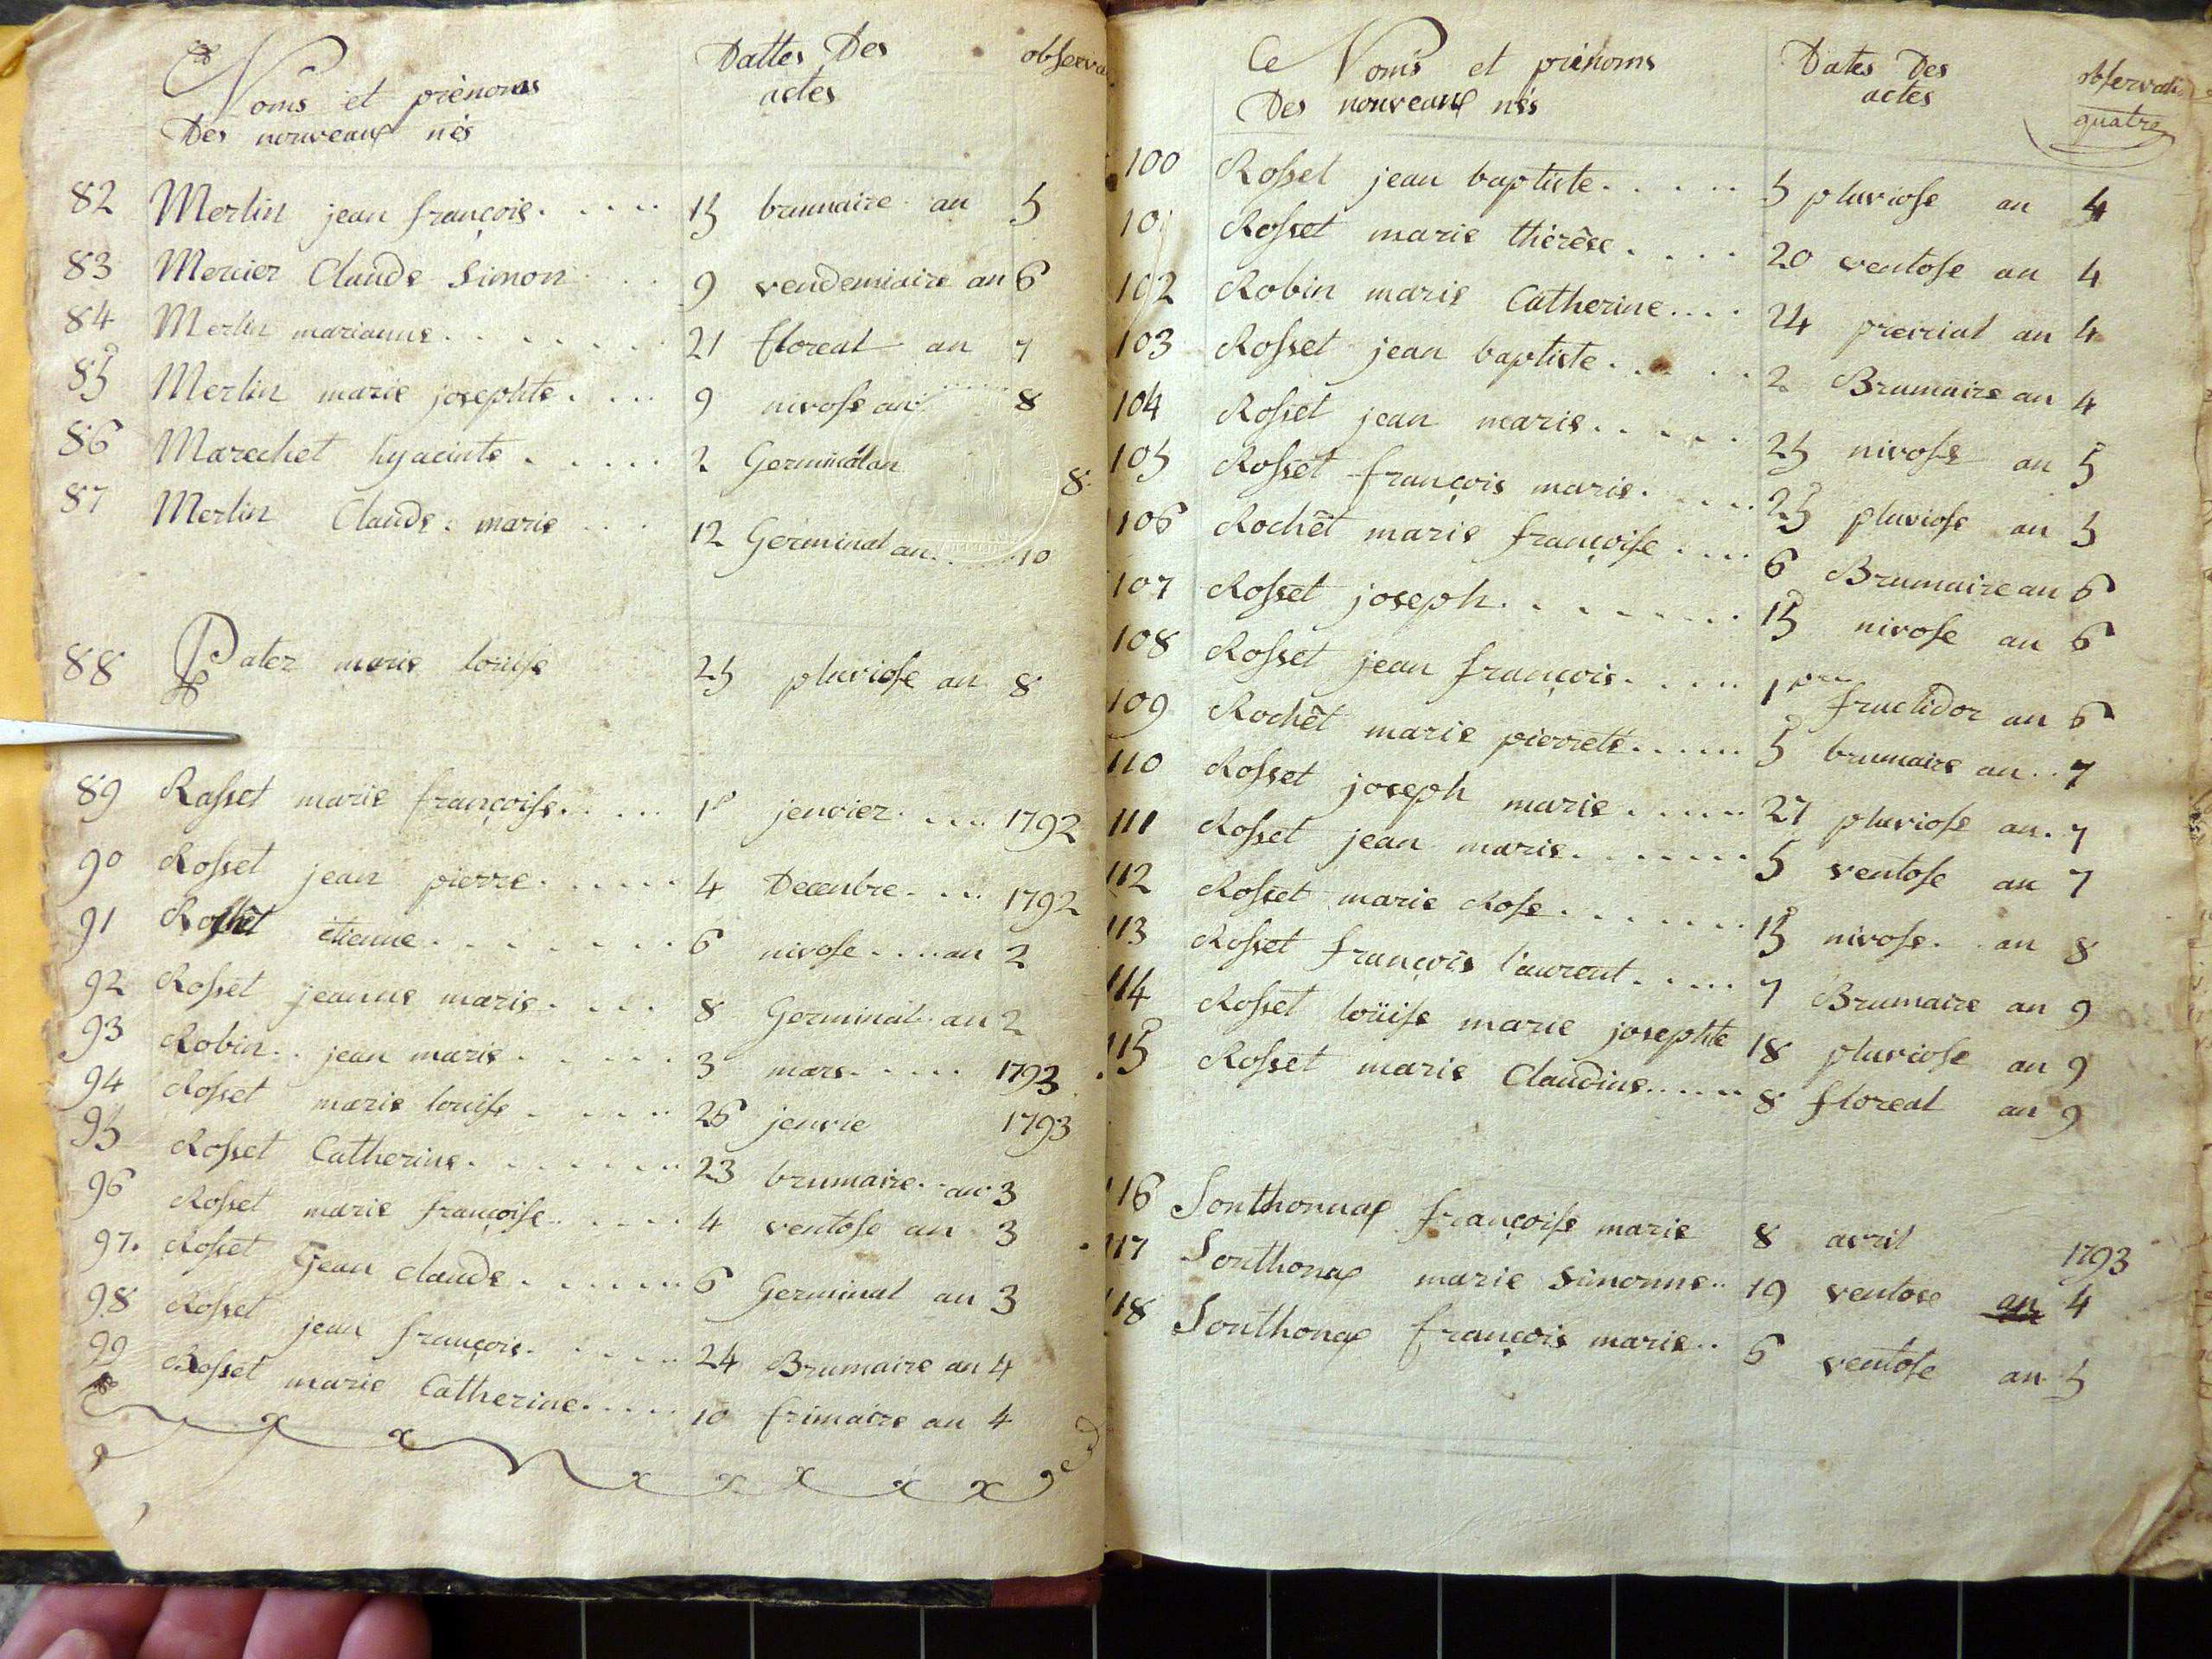 Noms et prénoms Dattes Des observa
Des nouveaux nés actes
82 Merlin jean françois..... 15 brumaire an 5
83 Mercier Claude Simon... 9 vendemiaire an 6
84 Merlin marianne....... 21 floreal an 7
85 Merlin marie josephte.... 9 nivose an 8
86 Marechet hyacinte..... 2 Germinal an 8
87 Merlin Claude. marie.... 12 Germinal an..... 10
88 Patez marie loüise 25 pluviose an 8
89 Rosset marie françoise..... 1er jenvier.... 1792
90 Rosset jean pierre..... 4 Decenbre.... 1792
91 Rochêt étienne....... 6 nivose....an 2
92 Rosset jeanne marie.... 8 Germinal an 2
93 Robin.. jean marie..... 3 mars..... 1793
94 Rosset marie louise..... 26 jenvie 1793
95 Rosset Catherine....... 23 brumaire an 3
96 Rosset marie françoise..... 4 ventose an 3
97. Rosset jean claude...... 6 Germinal an 3
98 Rosset jean françois..... 24 Brumaire an 4
99 Rosset marie Catherine..... 10 frimaire an 4
x x x x x x x
Ce Noms et prénoms Dates Des observati
Des nouveaux nés actes quatre
100 Rosset jean baptiste..... 5 pluviose an 4
101 Rosset marie thérêse..... 20 ventose an 4
102 Robin marie Catherine.... 24 preirial an 4
103 Rosset jean baptiste..... 2 Brumaire an 4
104 Rosset jean marie..... 25 nivose an 5
105 Rosset françois marie.... 25 pluviose an 5
106 Rochêt marie françoise.... 6 Brumaire an 6
107 Rosset joseph....... 15 nivose an 6
108 Rosset jean françois..... 1er fructidor an 6
109 Rochêt marie pierrete...... 5 brumaire an.. 7
110 Rosset joseph marie..... 27 pluviose an. 7
111 Rosset jean marie....... 5 ventose an 7
112 Rosset marie Rose....... 15 nivose. an 8
113 Rosset françois l'aurent..... 7 Brumaire an 9
114 Rosset loüise marie josephte 18 pluviose an 9
115 Rosset marie Claudine...... 8 floreal an 9
116 Sonthonnax françoise marie 8 avril 1793
117 Sonthonax marie Simonne.. 19 ventose an 4
118 Sonthonax françois marie.. 6 ventose an 5